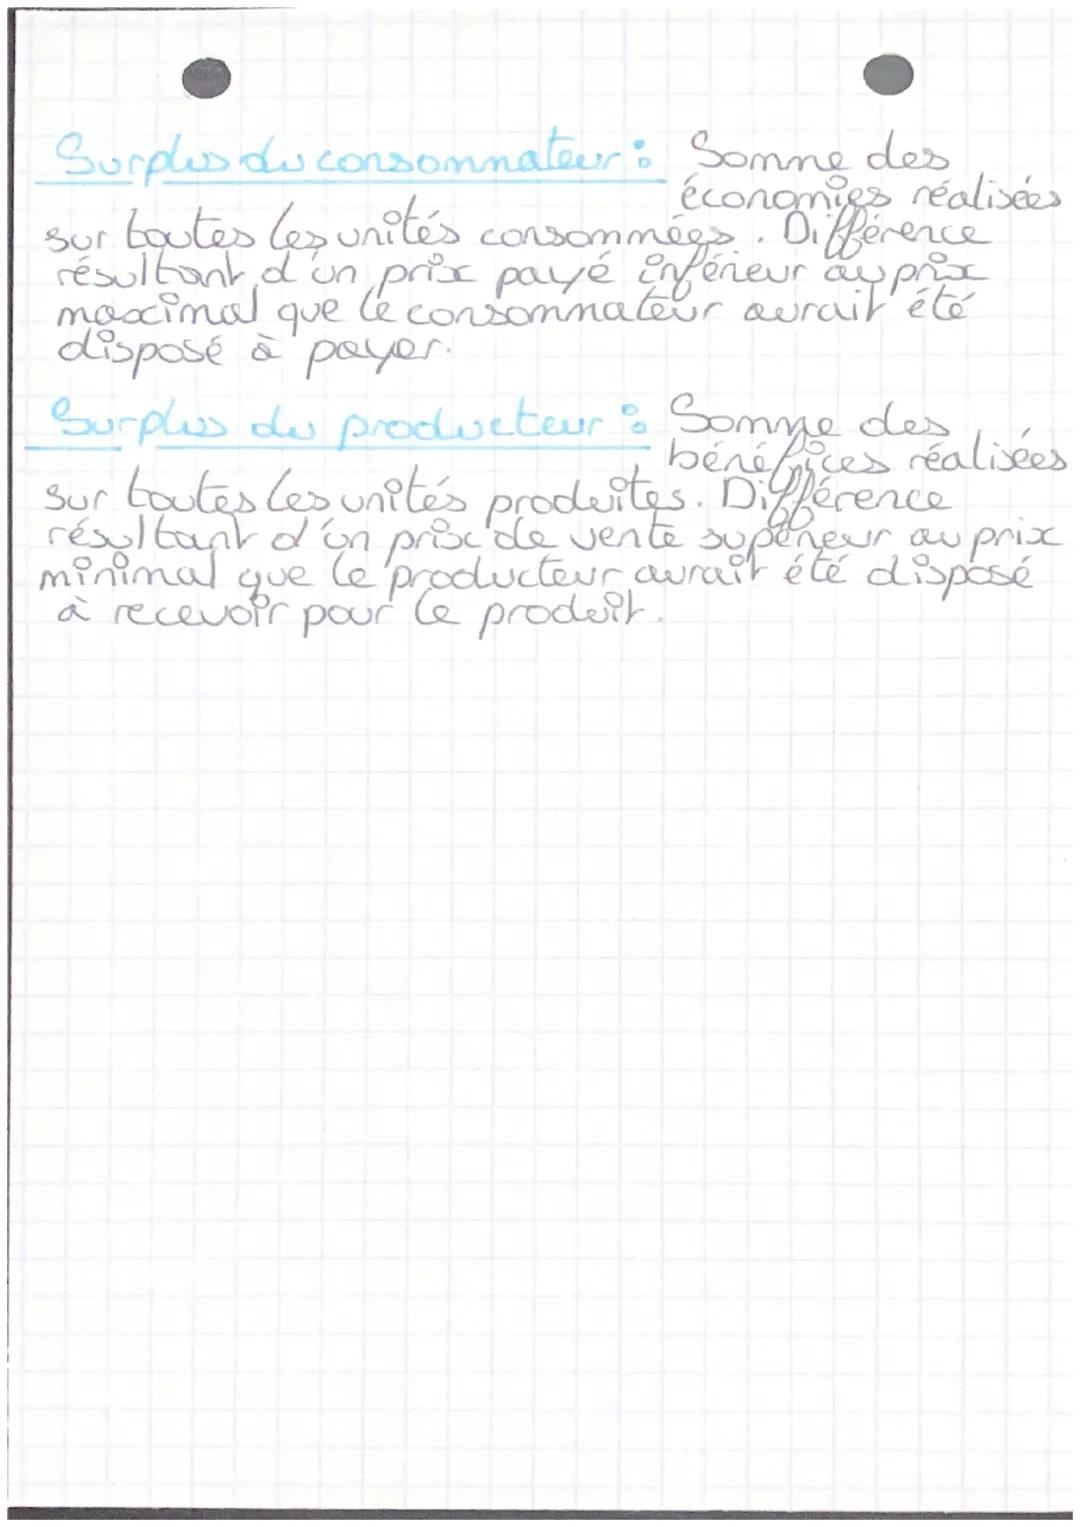 Surplus du consommateur : Somme des
économies réalisées
sur toutes les unités consommées. Différence
résultant d'un prix payé inférieur au prix
maximal que le consommateur aurait été
disposé à payer.
Surplus du producteur : Somme des
bénéfices réalisées
sur toutes les unités produites. Différence
résultant d'un prix de vente supérieur au prix
minimal que le producteur aurait été disposé
à recevoir pour le produit.